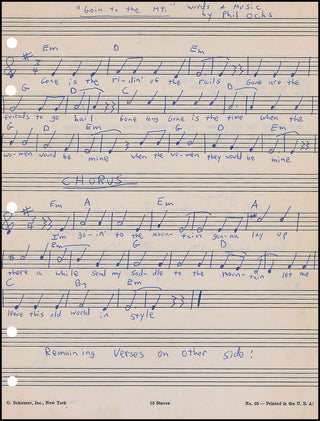 "Goin to the Mt." words & music
by Phil Ochs
Em D Em
Gone is the ri-din' of the rails Gone are the
G D C D
friends to go bail Gone long Gone is the time when the
G D Em G D Em
wo-men would be mine when the wo-men they would be mine
CHORUS
Em A Em A
I'm go-in' to the moun-tain gon-na lay up
Em G D
there a while send my sad-dle to the moun-tain let me
C B7 Em
leave this old world in style
Remaining verses on other side!
G. Schirmer, Inc., New York 10 Staves No. 05 — Printed in the U. S. A.